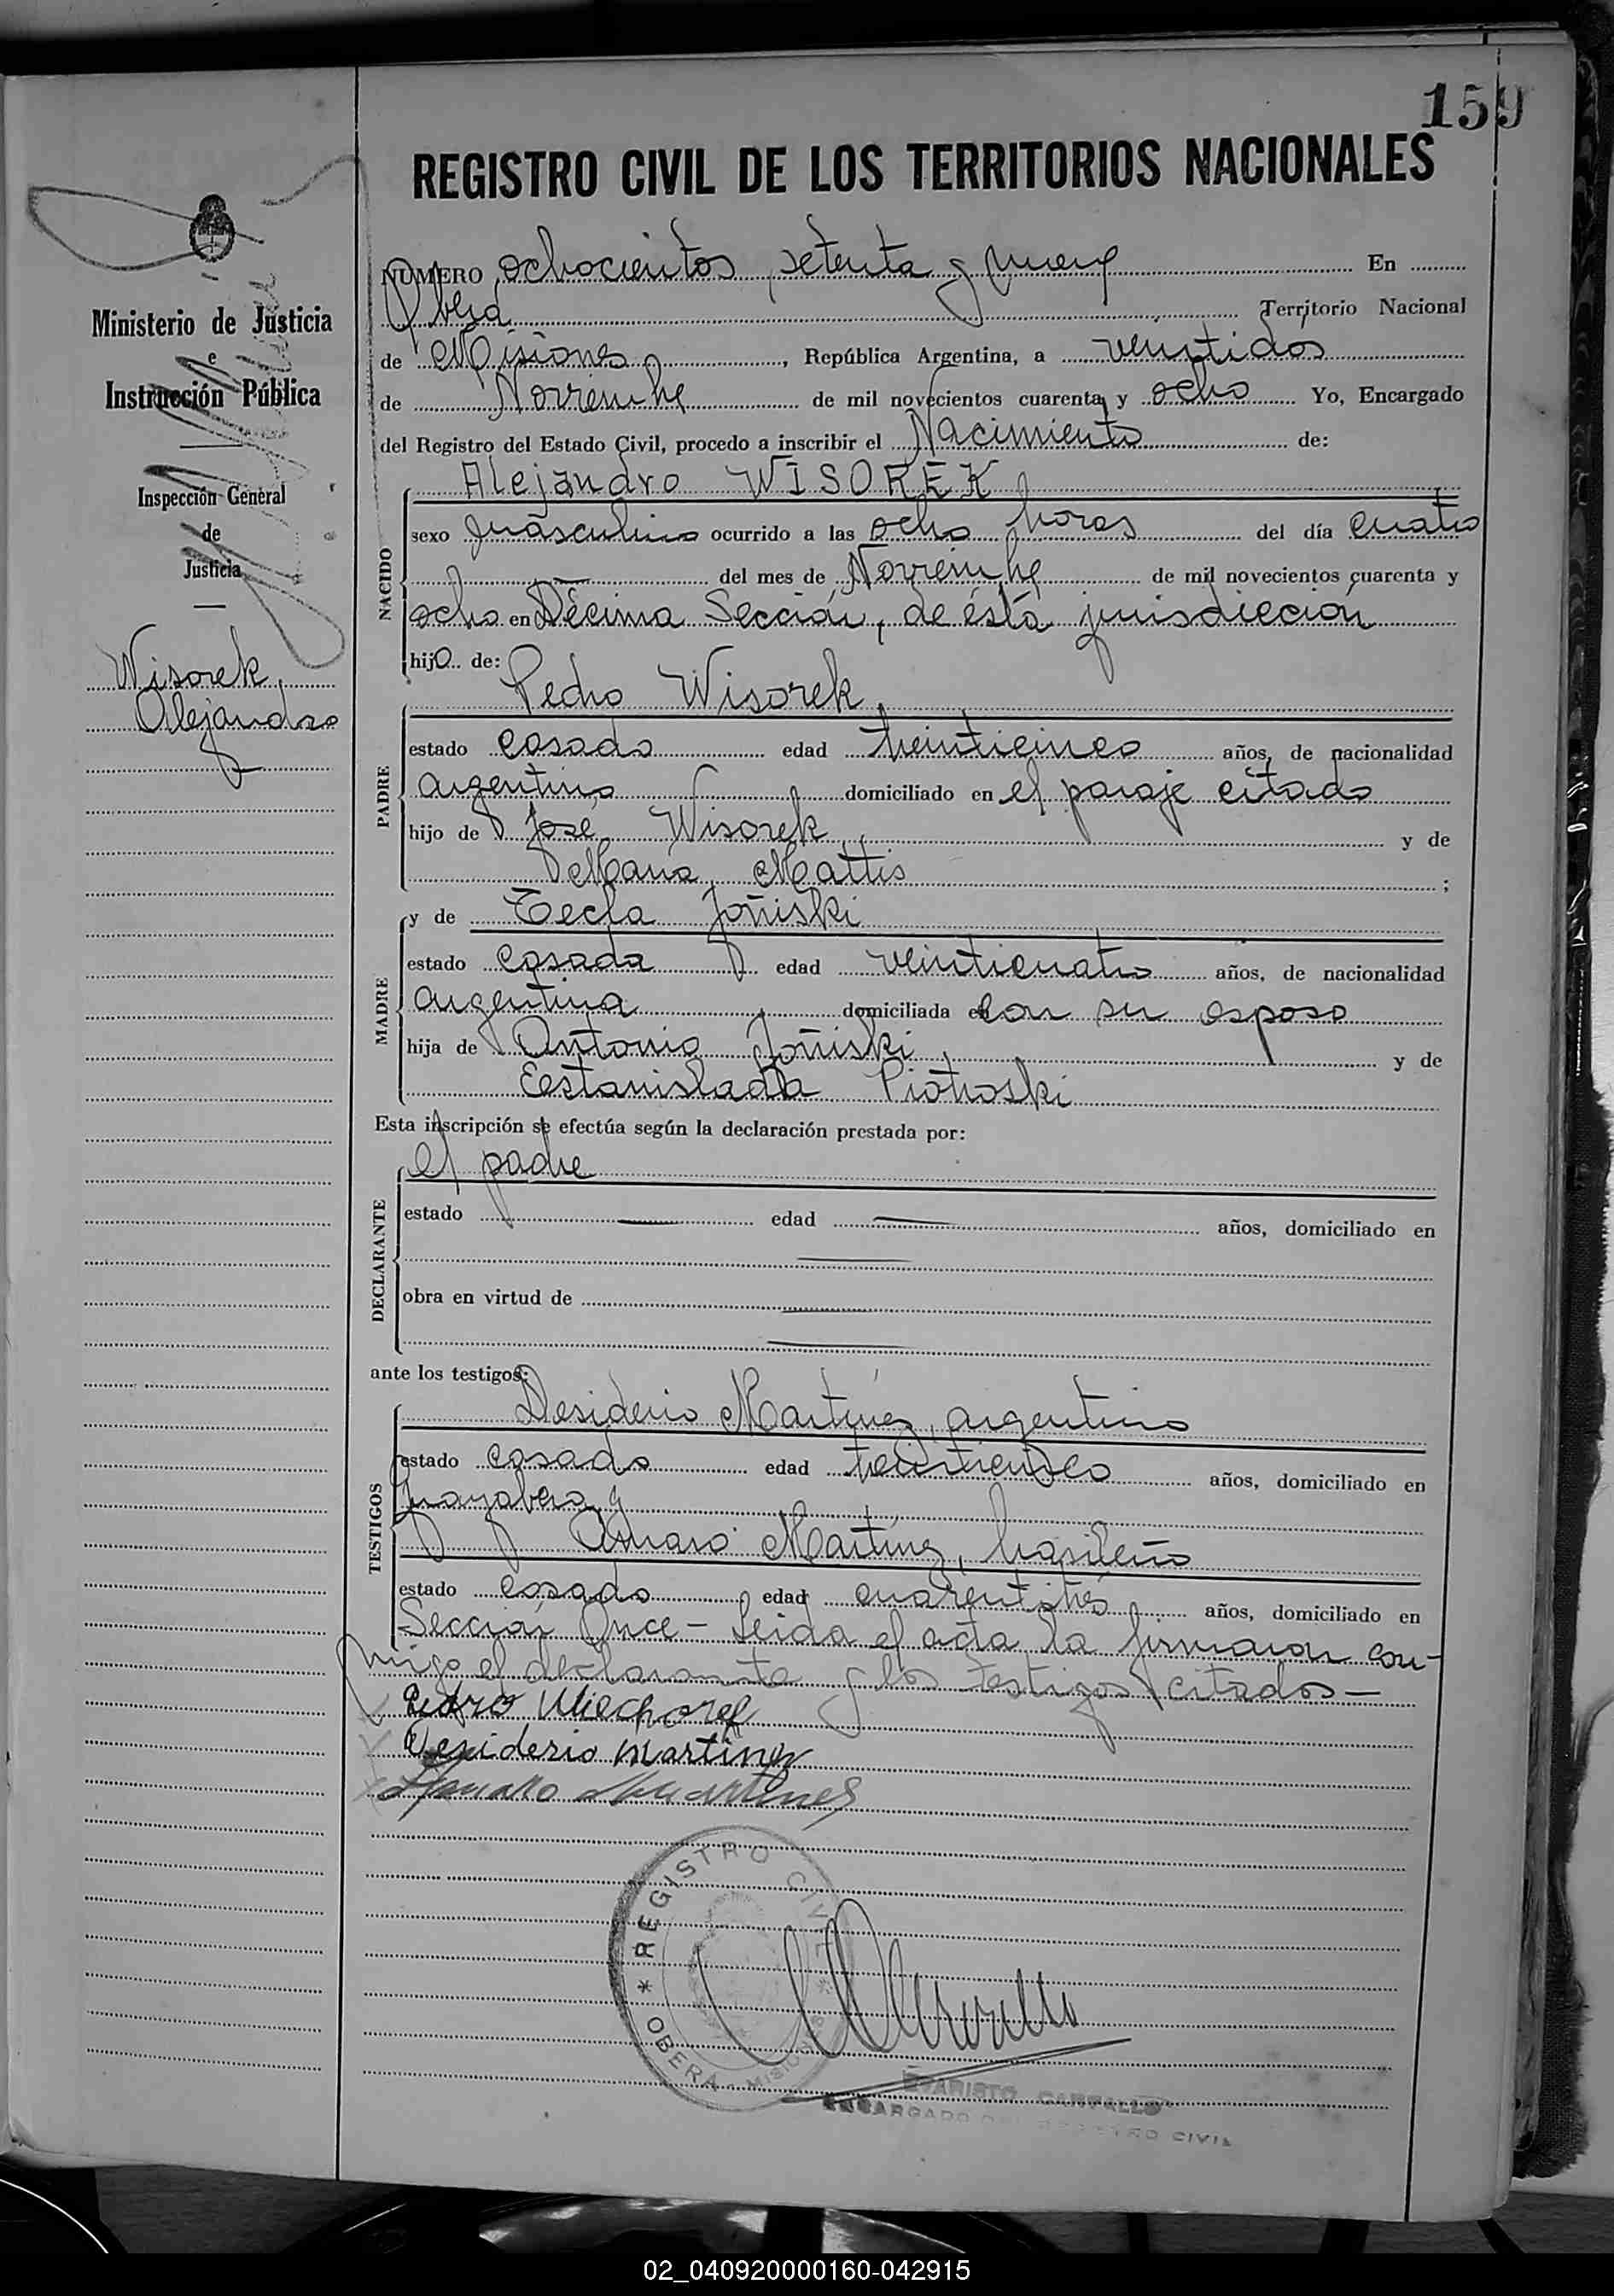 159
REGISTRO CIVIL DE LOS TERRITORIOS NACIONALES
NUMERO ochocientos setenta y nueve En
Oberá Territorio Nacional
de Misiones, República Argentina, a veintidos
de Noviembre de mil novecientos cuarenta y ocho Yo, Encargado
del Registro del Estado Civil, procedo a inscribir el Nacimiento de:
Alejandro WISOREK
NACIDO
sexo masculino ocurrido a las ocho horas del día cuatro
del mes de Noviembre de mil novecientos cuarenta y
ocho en Décima Sección, de ésta jurisdicción
hijo de:
Pedro Wisorek
PADRE
estado casado edad treinticinco años, de nacionalidad
argentino domiciliado en el paraje citado
hijo de José Wisorek y de
María Mattis ;
y de Tecla Joñiski
MADRE
estado casada edad veinticuatro años, de nacionalidad
argentina domiciliada en con su esposo
hija de Antonio Joñiski y de
Estanislada Piotroski
Esta inscripción se efectúa según la declaración prestada por:
el padre
DECLARANTE
estado edad años, domiciliado en
obra en virtud de
ante los testigos:
Desiderio Martínez, argentino
TESTIGOS
estado casado edad treinticinco años, domiciliado en
Guayabera y
Amaro Martínez, brasileño
estado casado edad cuarentitrés años, domiciliado en
Sección Once - Leida el acta la firmaron con-
migo el declarante y los testigos citados -
Pedro Wiechorek
Desiderio Martinez
Amaro Martines
REGISTRO CIVIL
* OBERA - MISIONES *
EVARISTO CARVALLO
ENCARGADO DEL REGISTRO CIVIL
Ministerio de Justicia
e
Instrucción Pública
Inspección General
de
Justicia
Wisorek,
Alejandro
02_040920000160-042915